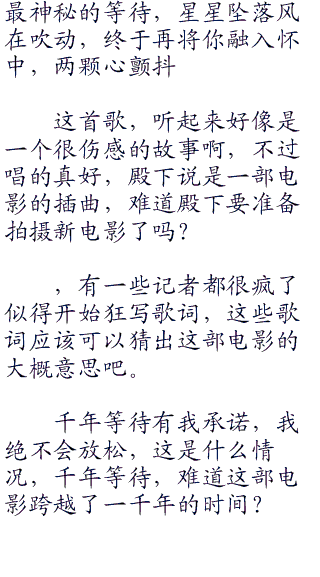 最神秘的等待，星星坠落风
在吹动，终于再将你融入怀
中，两颗心颤抖
这首歌，听起来好像是
一个很伤感的故事啊，不过
唱的真好，殿下说是一部电
影的插曲，难道殿下要准备
拍摄新电影了吗？
，有一些记者都很疯了
似得开始狂写歌词，这些歌
词应该可以猜出这部电影的
大概意思吧。
千年等待有我承诺，我
绝不会放松，这是什么情
况，千年等待，难道这部电
影跨越了一千年的时间？